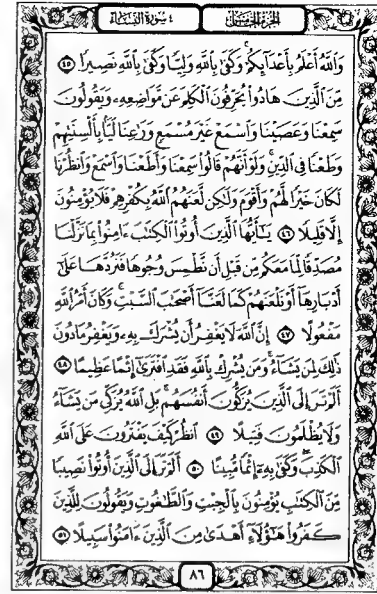 الجزء الخامس
٤ سورة النساء
وَاللَّهُ أَعْلَمُ بِأَعْدَائِكُمْ وَكَفَىٰ بِاللَّهِ وَلِيًّا وَكَفَىٰ بِاللَّهِ نَصِيرًا ٤٥
مِنَ الَّذِينَ هَادُوا يُحَرِّفُونَ الْكَلِمَ عَن مَّوَاضِعِهِ وَيَقُولُونَ
سَمِعْنَا وَعَصَيْنَا وَاسْمَعْ غَيْرَ مُسْمَعٍ وَرَاعِنَا لَيًّا بِأَلْسِنَتِهِمْ
وَطَعْنًا فِي الدِّينِ وَلَوْ أَنَّهُمْ قَالُوا سَمِعْنَا وَأَطَعْنَا وَاسْمَعْ وَانظُرْنَا
لَكَانَ خَيْرًا لَّهُمْ وَأَقْوَمَ وَلَٰكِن لَّعَنَهُمُ اللَّهُ بِكُفْرِهِمْ فَلَا يُؤْمِنُونَ
إِلَّا قَلِيلًا ٤٦ يَا أَيُّهَا الَّذِينَ أُوتُوا الْكِتَٰبَ ءَامِنُوا بِمَا نَزَّلْنَا
مُصَدِّقًا لِّمَا مَعَكُم مِّن قَبْلِ أَن نَّطْمِسَ وُجُوهًا فَنَرُدَّهَا عَلَىٰ
أَدْبَارِهَا أَوْ نَلْعَنَهُمْ كَمَا لَعَنَّا أَصْحَٰبَ السَّبْتِ وَكَانَ أَمْرُ اللَّهِ
مَفْعُولًا ٤٧ إِنَّ اللَّهَ لَا يَغْفِرُ أَن يُشْرَكَ بِهِ وَيَغْفِرُ مَا دُونَ
ذَٰلِكَ لِمَن يَشَاءُ وَمَن يُشْرِكْ بِاللَّهِ فَقَدِ افْتَرَىٰ إِثْمًا عَظِيمًا ٤٨
أَلَمْ تَرَ إِلَى الَّذِينَ يُزَكُّونَ أَنفُسَهُم بَلِ اللَّهُ يُزَكِّي مَن يَشَاءُ
وَلَا يُظْلَمُونَ فَتِيلًا ٤٩ انظُرْ كَيْفَ يَفْتَرُونَ عَلَى اللَّهِ
الْكَذِبَ وَكَفَىٰ بِهِ إِثْمًا مُّبِينًا ٥٠ أَلَمْ تَرَ إِلَى الَّذِينَ أُوتُوا نَصِيبًا
مِّنَ الْكِتَٰبِ يُؤْمِنُونَ بِالْجِبْتِ وَالطَّٰغُوتِ وَيَقُولُونَ لِلَّذِينَ
كَفَرُوا هَٰؤُلَاءِ أَهْدَىٰ مِنَ الَّذِينَ ءَامَنُوا سَبِيلًا ٥١
٨٦